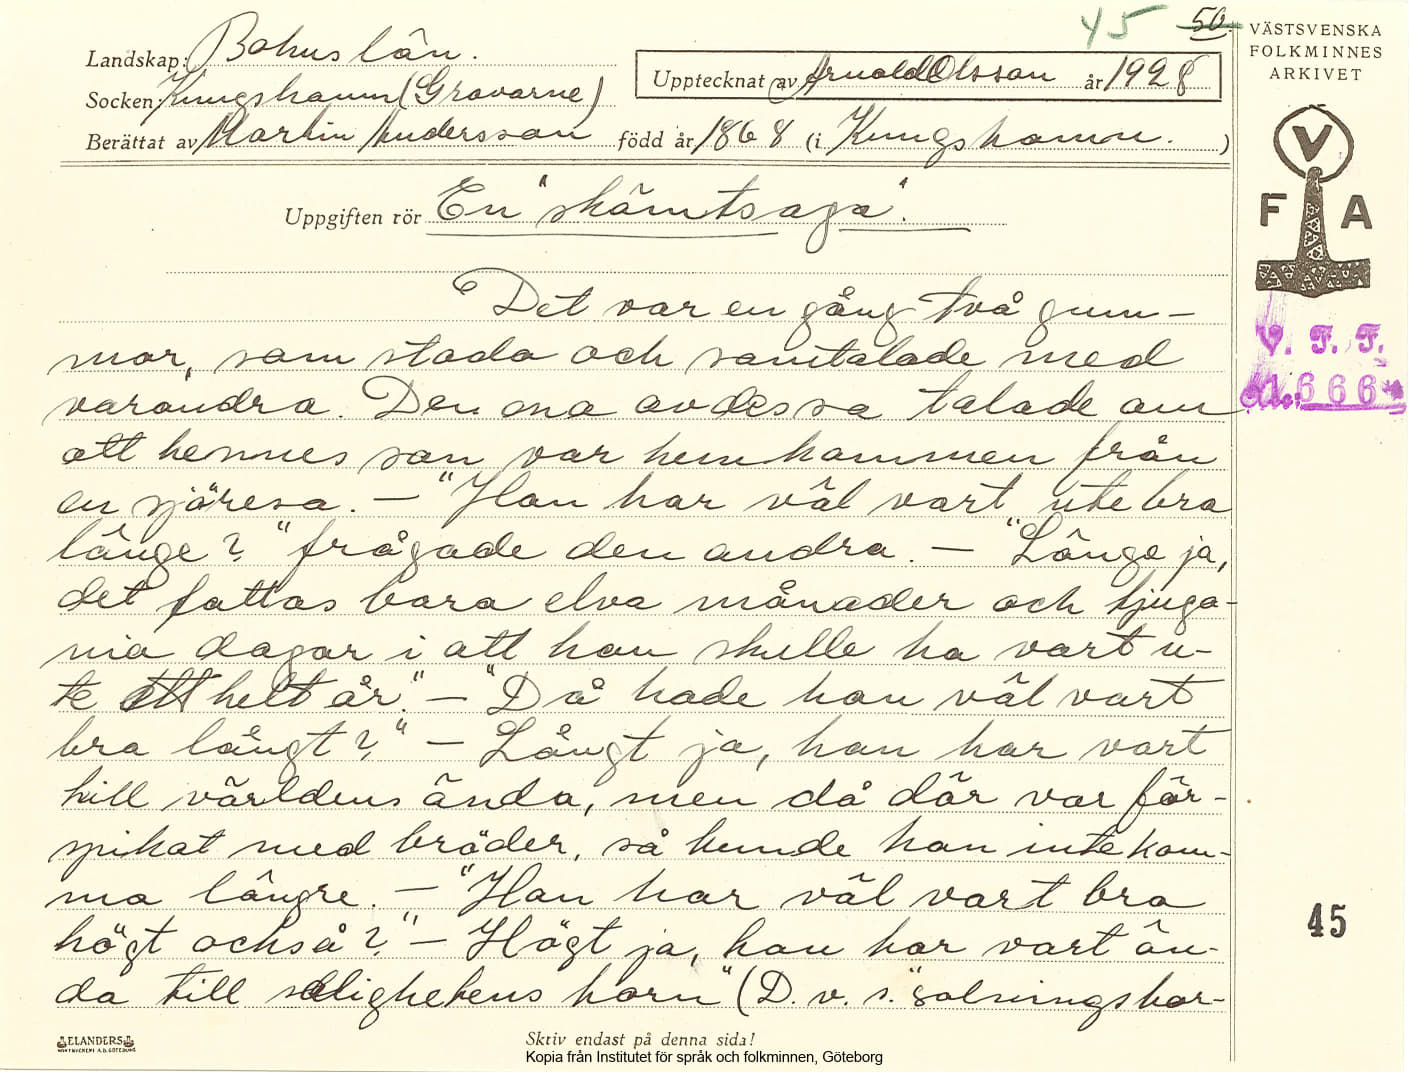 45 50.
VÄSTSVENSKA
FOLKMINNES
ARKIVET
Landskap: Bohuslän.
Upptecknat av Arnold Olsson år 1928
Socken: Kungshamn (Gravarne)
Berättat av Martin Andersson född år 1868 (i Kungshamn. )
Uppgiften rör En "skämtsaga".
V
F A
V. F. F.
1666
Det var en gång två gum-
mor, som stodo och samtalade med
varandra. Den ena av dessa talade om
att hennes son var hemkommen från
en sjöresa. — "Han har väl vart ute bra
länge?" frågade den andra. — "Länge ja,
det fattas bara elva månader och tjugo-
nio dagar i att han skulle ha vart u-
te ett helt år." — "Då hade han väl vart
bra långt?" — Långt ja, han har vart
till världens ända, men då där var för-
spikat med bräder, så kunde han inte kom-
ma längre. — "Han har väl vart bra
högt också?" — Högt ja, han har vart än-
da till salighetens horn" (D. v. s. "salningshor-
45
ELANDERS
BOKTRYCKERI A.B. GÖTEBORG
Skriv endast på denna sida!
Kopia från Institutet för språk och folkminnen, Göteborg